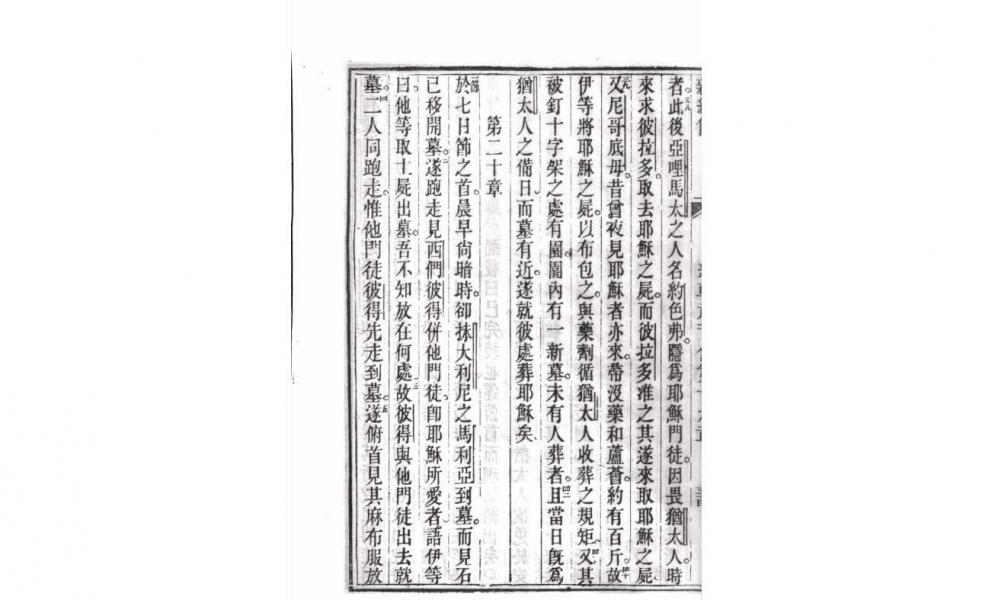 者此後亞哩馬太之人名約色弗隱爲耶穌門徒因畏猶太人時
來求彼拉多取去耶穌之屍而彼拉多准之其遂來取耶穌之屍
又尼哥底母昔曾夜見耶穌者亦來帶沒藥和蘆薈約有百斤故
伊等將耶穌之屍以布包之與藥劑循猶太人收葬之規矩又其
被釘十字架之處有園園內有一新墓未有人葬者且當日旣爲
猶太人之備日而墓有近遂就彼處葬耶穌矣
第二十章
於七日節之首晨早尚暗時卻抹大利尼之馬利亞到墓而見石
已移開墓遂跑走見西們彼得併他門徒卽耶穌所愛者語伊等
曰他等取主屍出墓吾不知放在何處故彼得與他門徒出去就
墓二人同跑走惟他門徒彼得先走到墓遂俯首見其麻布服放